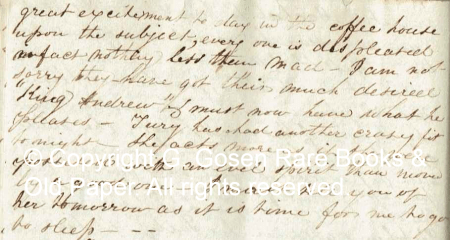 great excitement to day in the coffee house
upon the subject, every one is displeased
in fact nothing less than mad - I am not
sorry they have got their much desired
"King Andrew" & must now have what he
pleases - Tury has had another crasy fit
to night - She acts more as if she
with an evil spirit than
you of
her tomorrow as it is time for me to go
to sleep - -
© Copyright G. Gosen Rare Books &
Old Paper. All rights reserved.